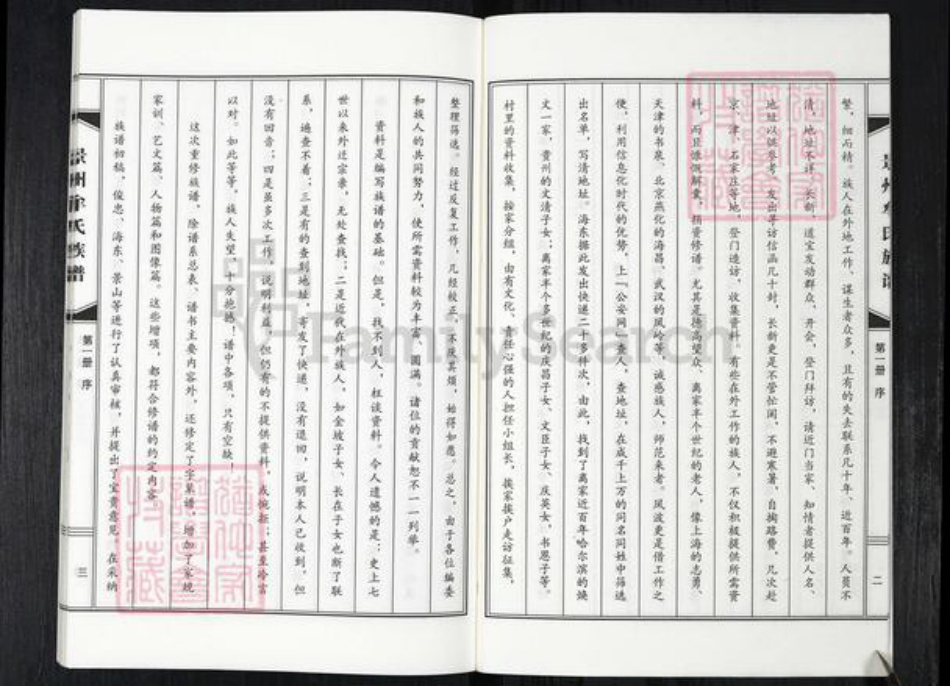 第一册 序
二
繁，细而精，族人在外地工作、谋生者众多，且有的失去联系几十年、近百年。人员不
清，地址不详，长新、道宝发动群众，开会，登门拜访，请近门当家、知情者提供人名、
地址以供参考，发出寻访信函几十封，长新更是不管忙闲，不避寒暑，自掏路费，几次赴
京、津、石家庄等地，登门造访，收集资料。有些在外工作的族人，不仅积极提供所需资
料，而且慷慨解囊，捐资修谱。尤其是德高望众、离家半个世纪的老人，像上海的志勇、
天津的书泉、北京燕化的海昌、武汉的凤岭等，诚感族人，师范来者。凤波更是借工作之
便，利用信息化时代的优势，上『公安网』查人，查地址，在成千上万的同名同姓中筛选
出名单，写清地址。海东据此发出快递二十多件次，由此，找到了离家近百年哈尔滨的焕
文一家，贵州的文清子女；离家半个多世纪的庆昌子女、文臣子女、庆英女，书恩子等。
村里的资料收集，按家分组，由有文化、责任心强的人担任小组长，挨家挨户走访征集，
整理筛选。经过反复工作，几经校正，不厌其烦，始得如愿。总之，由于各位编委
和族人的共同努力，使所需资料较为丰富、圆满。诸位的贡献恕不一一列举。
资料是编写族谱的基础。但是，找不到人，枉谈资料。令人遗憾的是：史上七
世以来外迁宗亲，无处查找；二是近代在外族人，如金坡子女、长在子女也断了联
系，遍查不着；三是有的查到地址，寄发了快递，没有退回，说明本人已收到，但
没有回音；四是虽多次工作，说明利益，但仍有的不提供资料，或婉拒；甚至冷言
以对。如此等等。族人失望，十分抱憾！谱中各项，只有空缺！
这次重修族谱，除谱系总表、谱书主要内容外，还修定了字辈谱，增加了家规
家训、艺文篇、人物篇和图像篇。这些增项，都符合修谱的约定内容。
族谱初稿，俊忠、海东、景山等进行了认真审核，并提出了宝贵意见。在采纳
氏族谱
第一册 序
三
FamilySearch